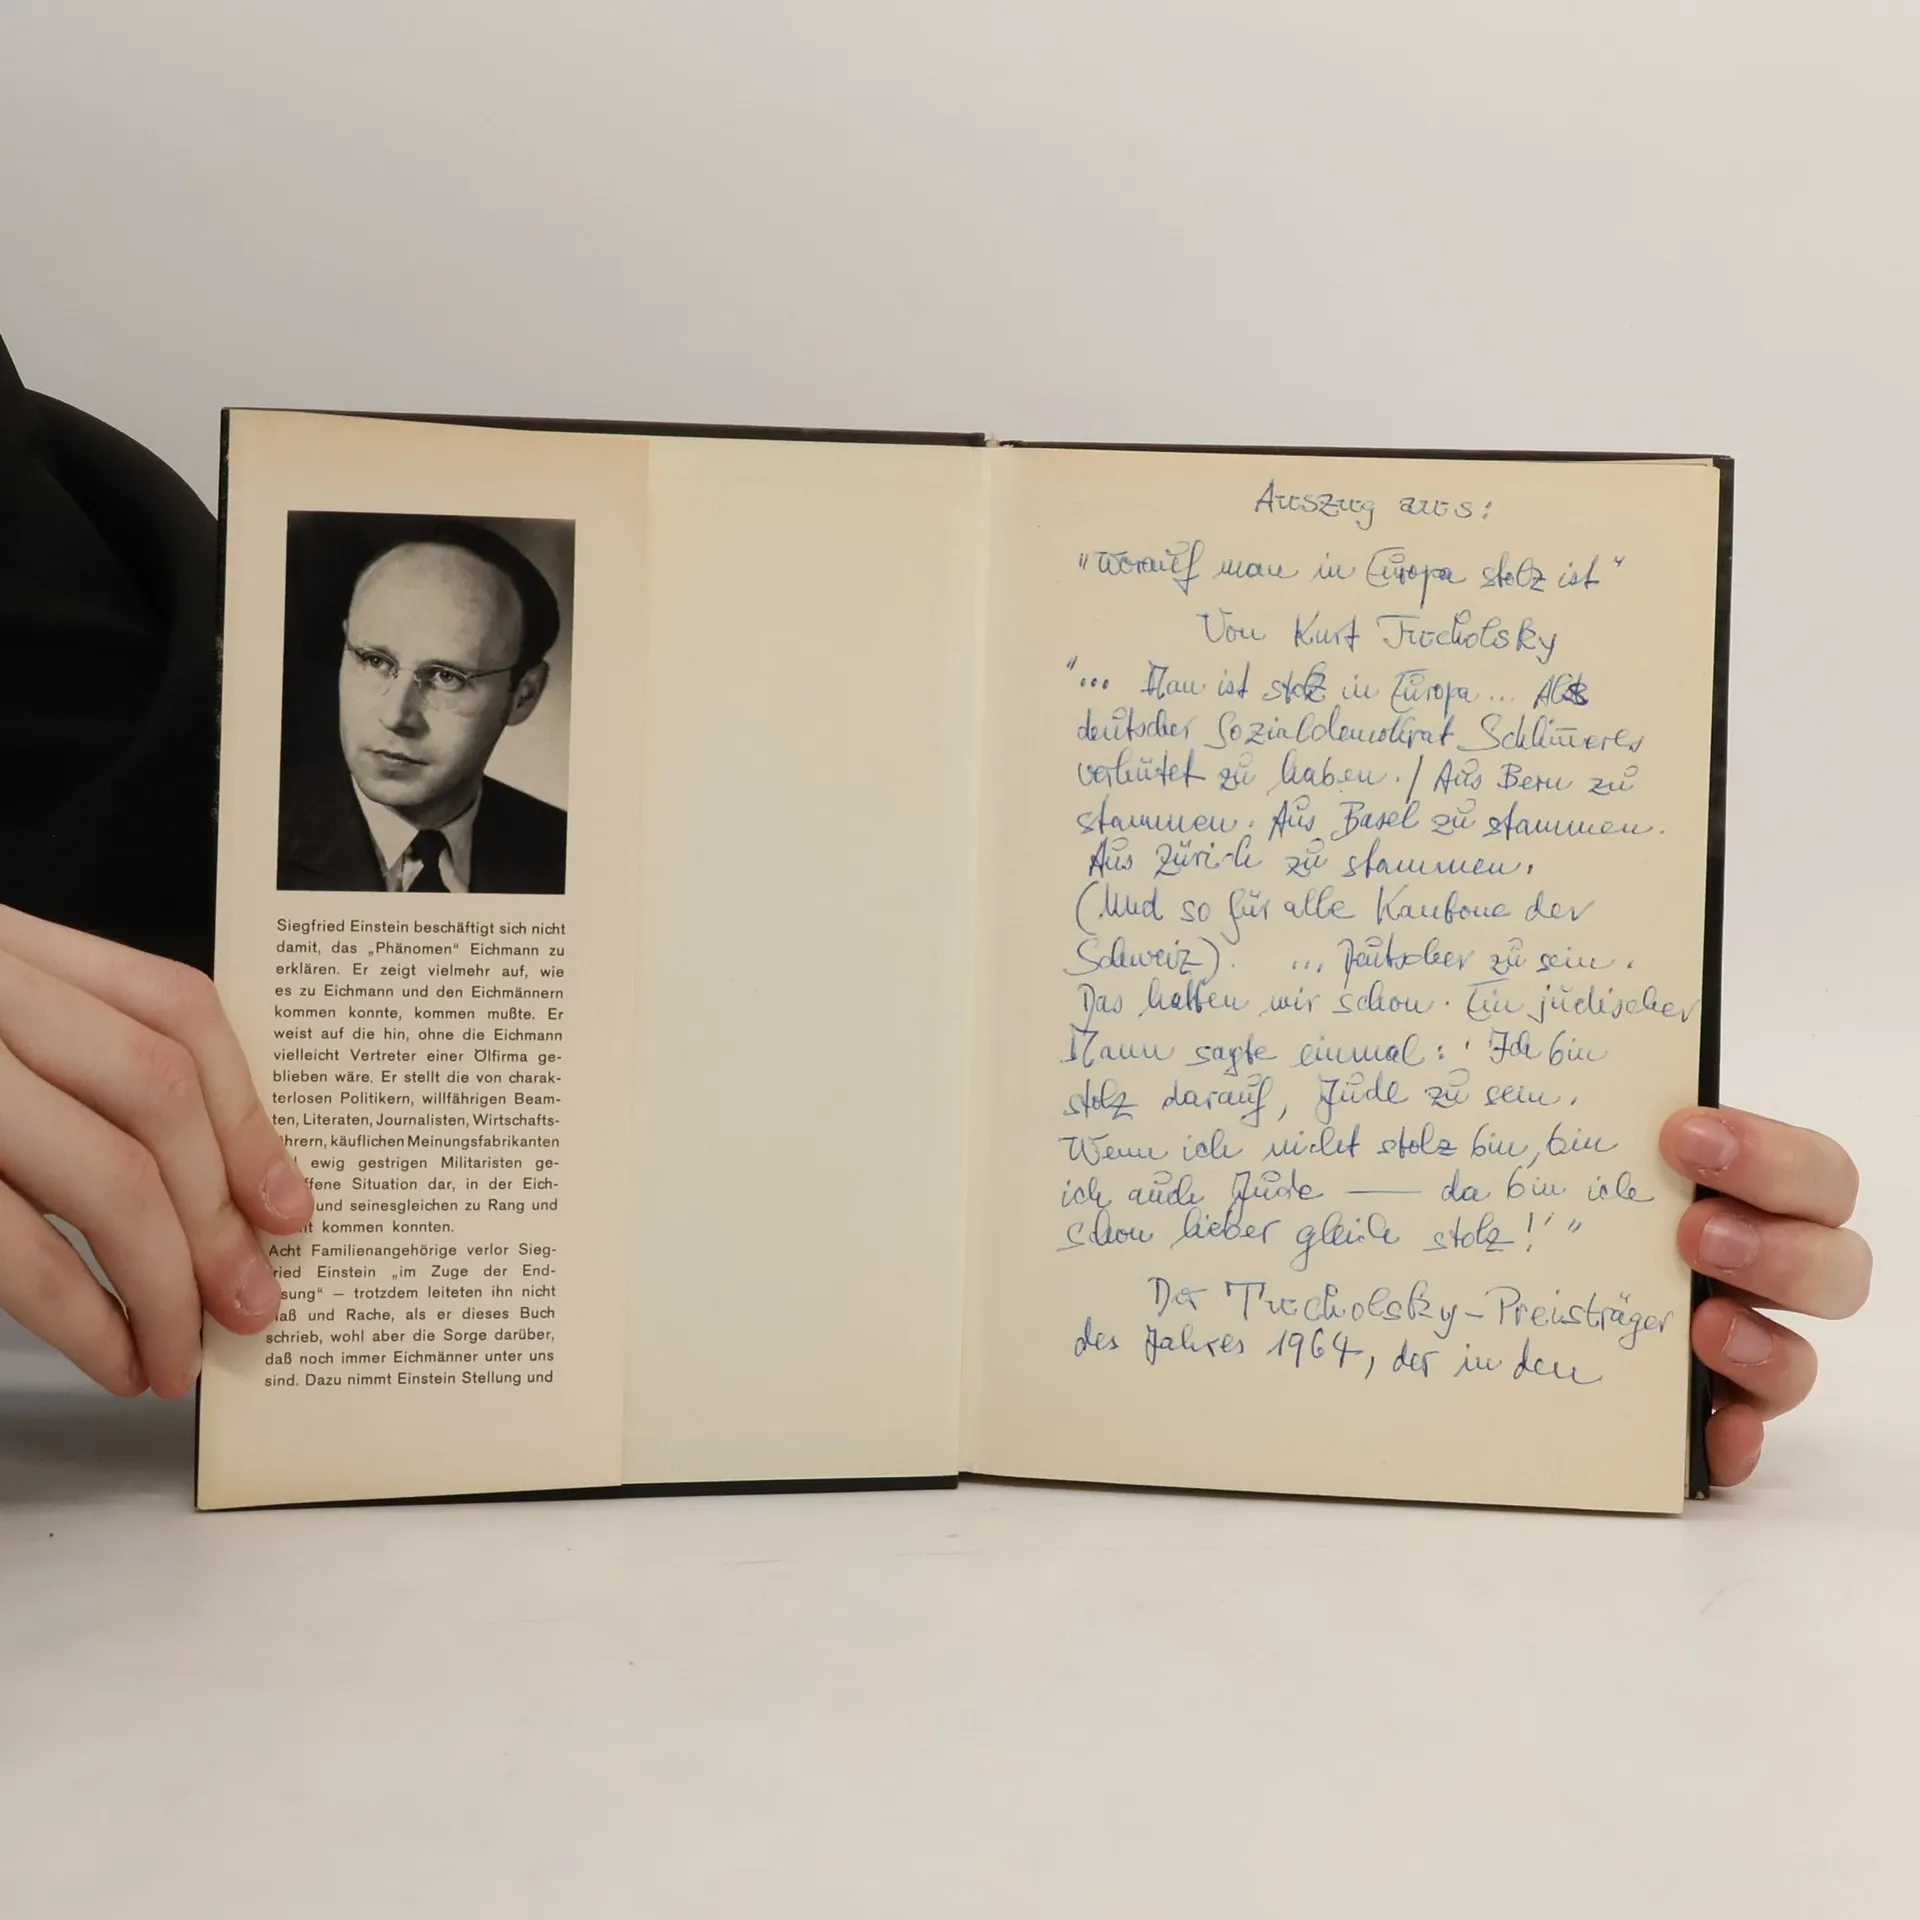 Siegfried Einstein beschäftigt sich nicht
damit, das „Phänomen“ Eichmann zu
erklären. Er zeigt vielmehr auf, wie
es zu Eichmann und den Eichmännern
kommen konnte, kommen mußte. Er
weist auf die hin, ohne die Eichmann
vielleicht Vertreter einer Ölfirma ge-
blieben wäre. Er stellt die von charak-
terlosen Politikern, willfährigen Beam-
ten, Literaten, Journalisten, Wirtschafts-
hrern, käuflichen Meinungsfabrikanten
ewig gestrigen Militaristen ge-
ffene Situation dar, in der Eich-
und seinesgleichen zu Rang und
kommen konnten.
Acht Familienangehörige verlor Sieg-
ried Einstein „im Zuge der End-
sung“ — trotzdem leiteten ihn nicht
aß und Rache, als er dieses Buch
schrieb, wohl aber die Sorge darüber,
daß noch immer Eichmänner unter uns
sind. Dazu nimmt Einstein Stellung und
Auszug aus:
"Worauf man in Europa stolz ist"
Von Kurt Tucholsky
"... Man ist stolz in Europa... Als
deutscher Sozialdemokrat Schlimmeres
verhütet zu haben. / Aus Bern zu
stammen. Aus Basel zu stammen.
Aus Zürich zu stammen.
(Und so für alle Kantone der
Schweiz). ... Deutscher zu sein.
Das hatten wir schon. Ein jüdischer
Mann sagte einmal: 'Ich bin
stolz darauf, Jude zu sein.
Wenn ich nicht stolz bin, bin
ich auch Jude — da bin ich
schon lieber gleich stolz!'"
Der Tucholsky-Preisträger
des Jahres 1964, der in den